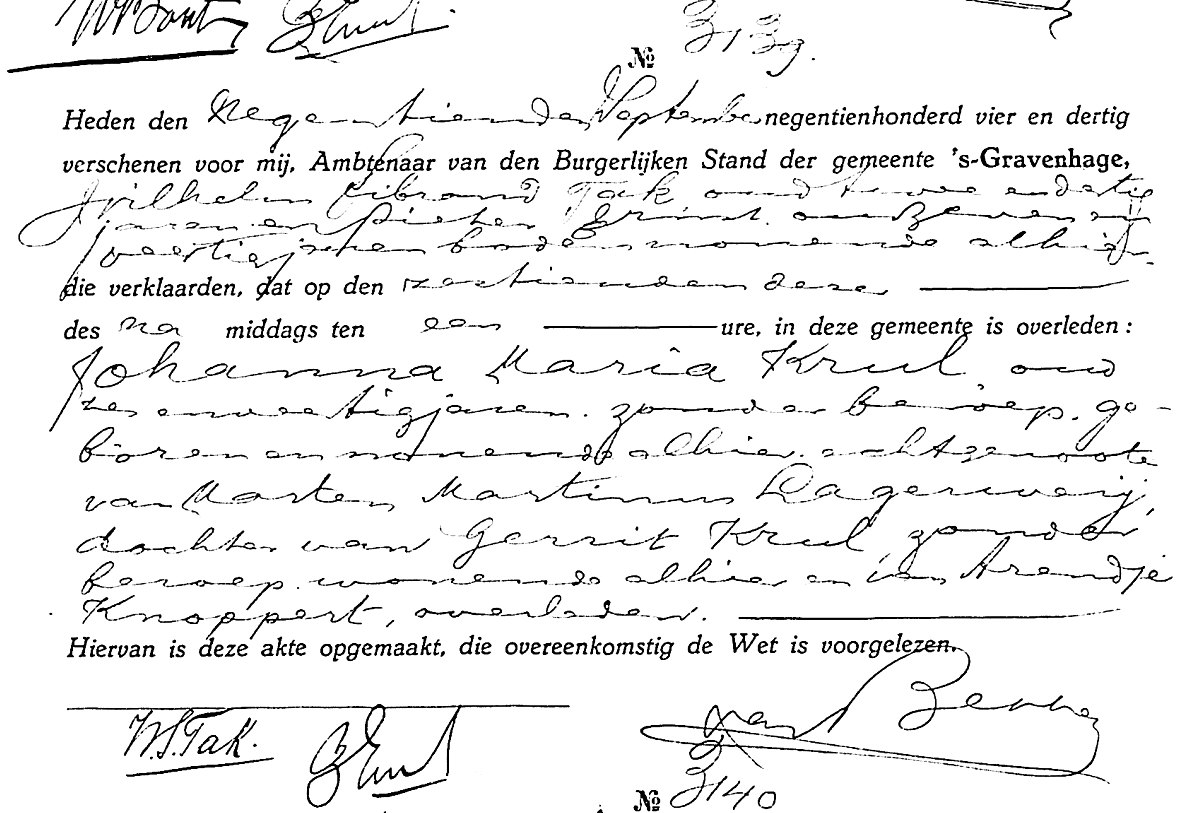 № 3139.
Heden den Negentienden September negentienhonderd vier en dertig
verschenen voor mij, Ambtenaar van den Burgerlijken Stand der gemeente 's-Gravenhage,
Wilhelm Sibrand Tak, oud twee en dertig
jaren en Pieter oud zeven en
veertig jaren, boden, wonende alhier,
die verklaarden, dat op den zestienden dezer
des na middags ten een ure, in deze gemeente is overleden :
Johanna Maria Krul, oud
zes en veertig jaren, zonder beroep, ge-
boren en wonende alhier, echtgenoote
van Marten Martinus Lagerweij,
dochter van Gerrit Krul, zonder
beroep, wonende alhier en van Arendje
Knoppert, overleden.
Hiervan is deze akte opgemaakt, die overeenkomstig de Wet is voorgelezen.
W.S.Tak.
№ 3140